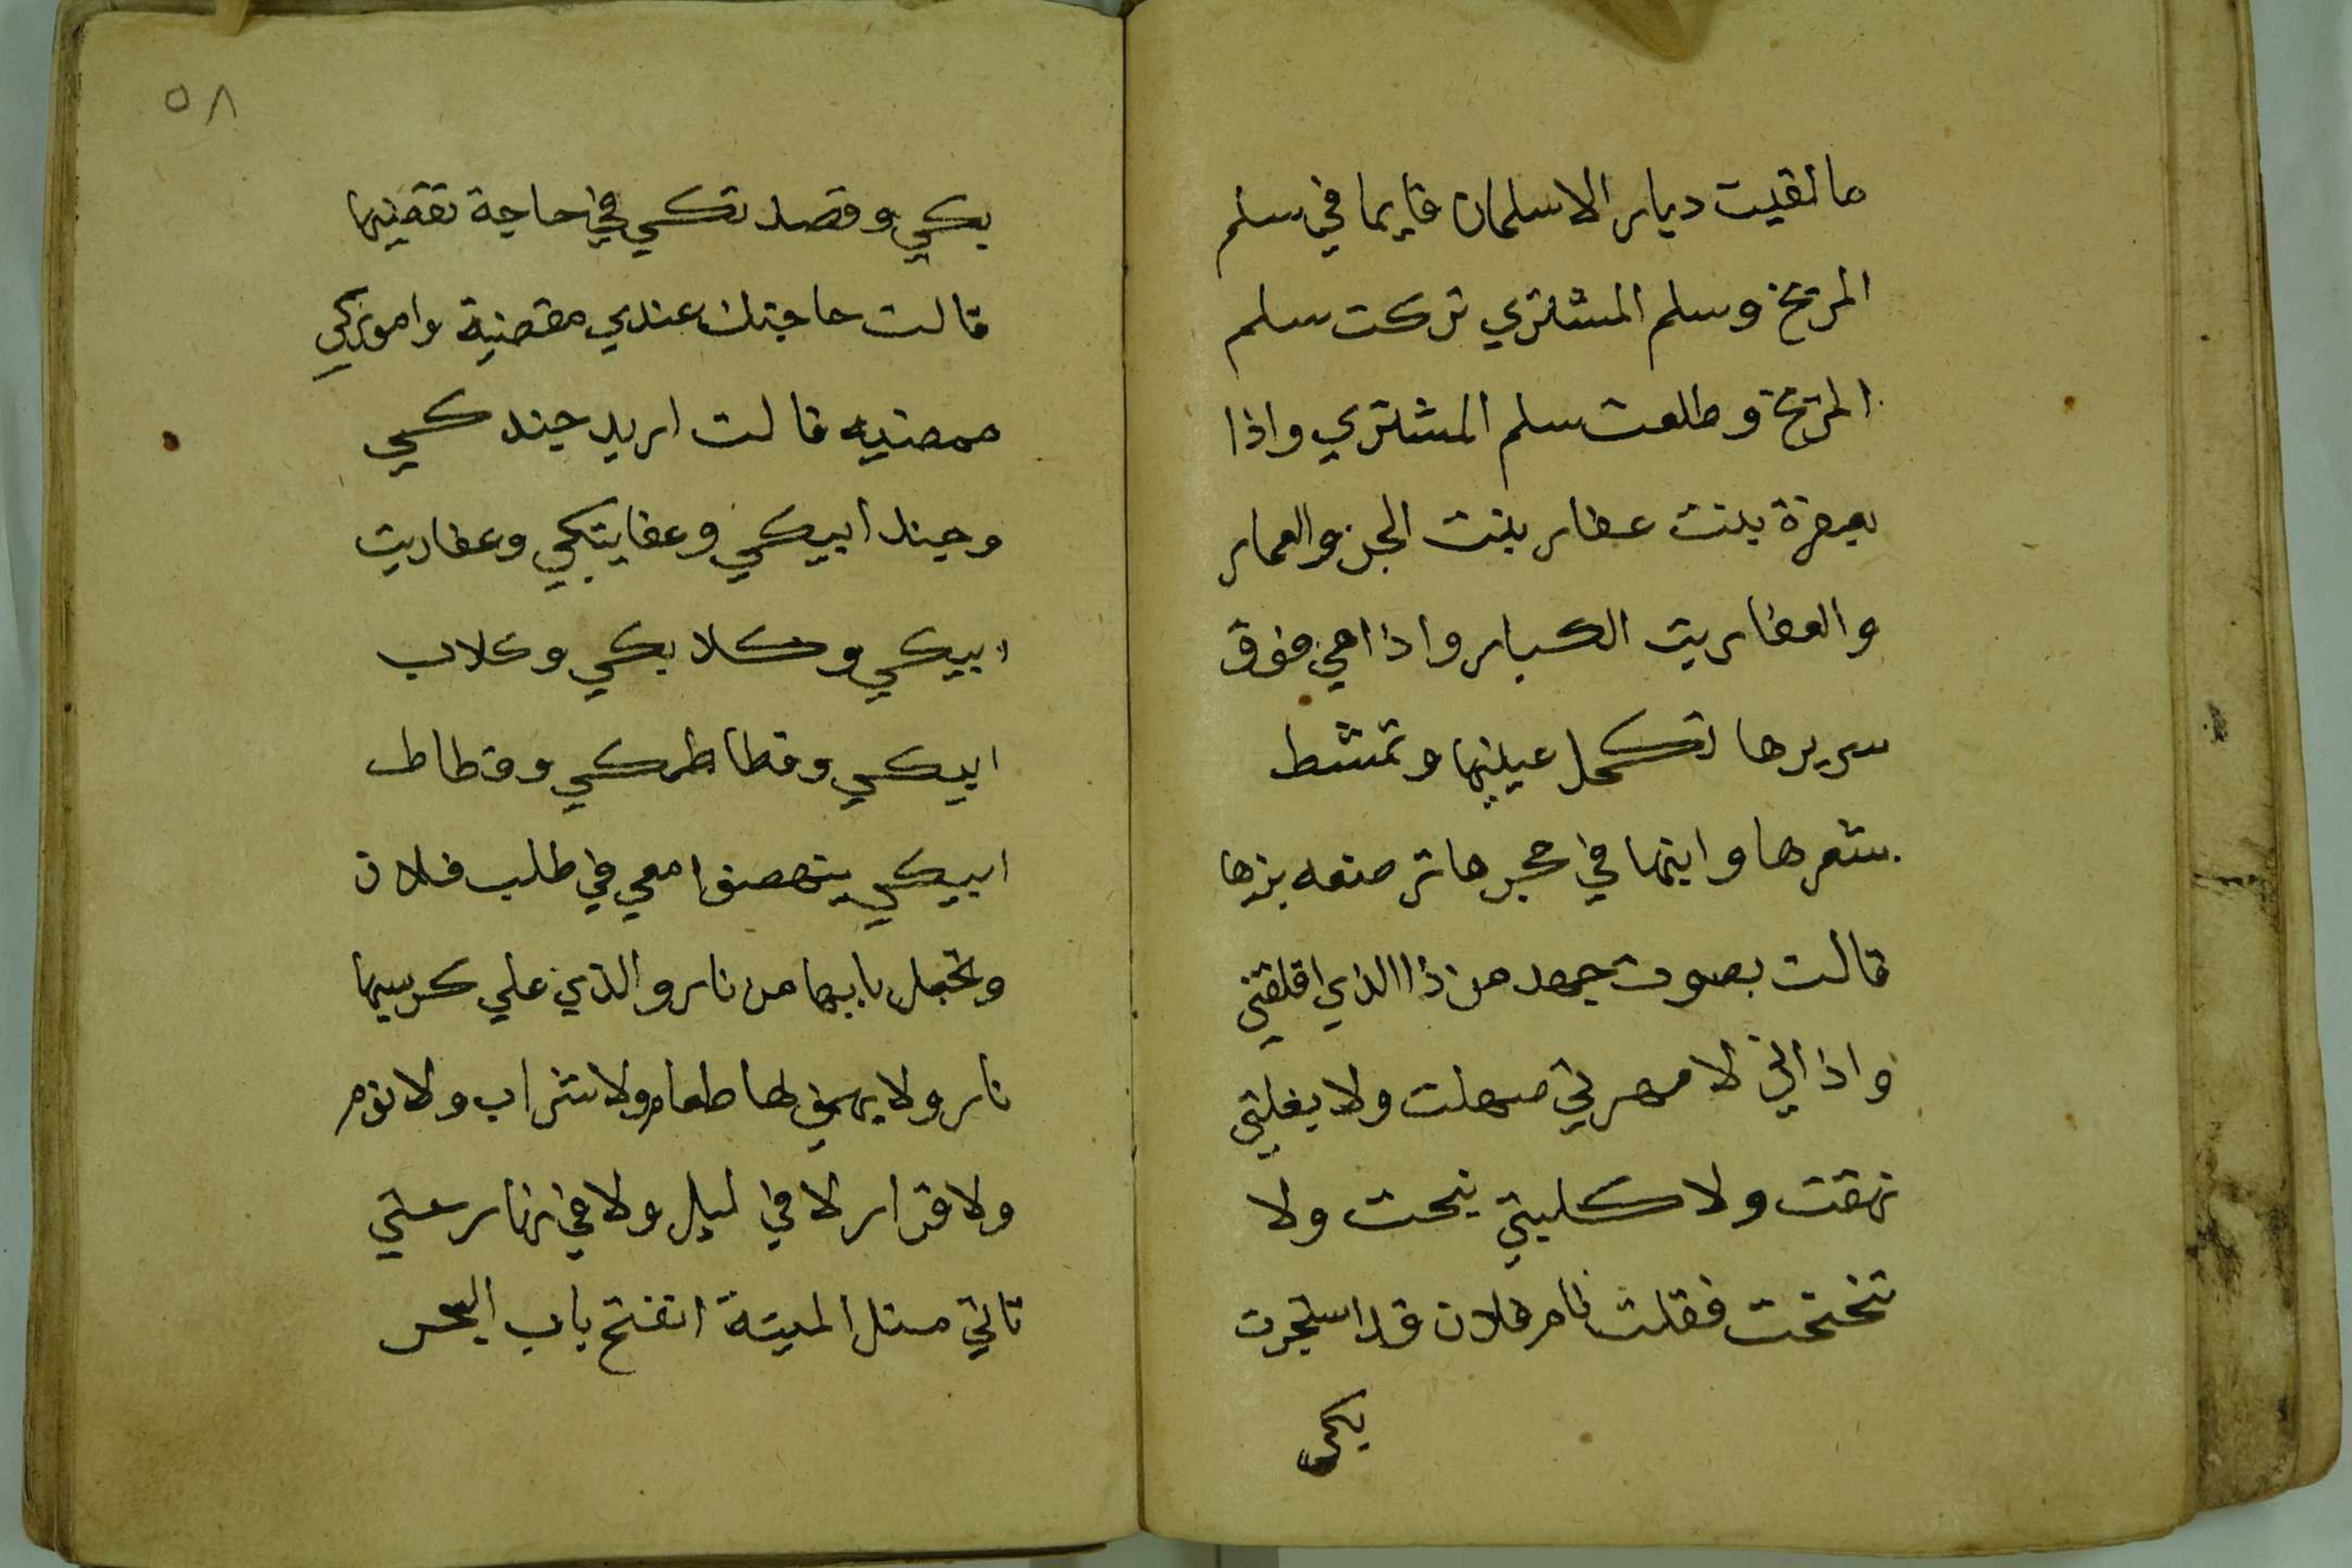 ما لقيت ديار الا سلمان قايما في سلم
المريخ وسلم المشتري تركت سلم
المريخ وطلعت سلم المشتري واذا
بعيفرة بنت عفار بنت الجن والعمار
والعفاريت الكبار واذا هي فوق
سريرها تكحل عينيها وتمشط
شعرها وابنها في حجرها ترضعه بزها
قالت بصوت جهد من ذا الذي اقلقني
واذاني لا مهرتي صهلت ولا بغلتي
نهقت ولا كلبتي نبحت ولا
تنحنحت فقلت نا م فلان قد استجرت
بكي
٥٨
بكي وقصدتكي في حاجة تقضيها
قالت حاجتك عندي مقضية واموركي
ممضيه قالت اريد جندكي
وجند ابيكي وعفايتكي وعفاريت
ابيكي وكلابكي وكلاب
ابيكي وقطاطكي وقطاط
ابيكي ينهضوا معي في طلب فلان
وتجعل بابها من نار والذي علي كرسيها
نار ولا يهني لها طعام ولا شراب ولا نوم
ولا قرار لا في ليل ولا في نهار حتي
تاتي مثل الميتة انفتح باب البحر